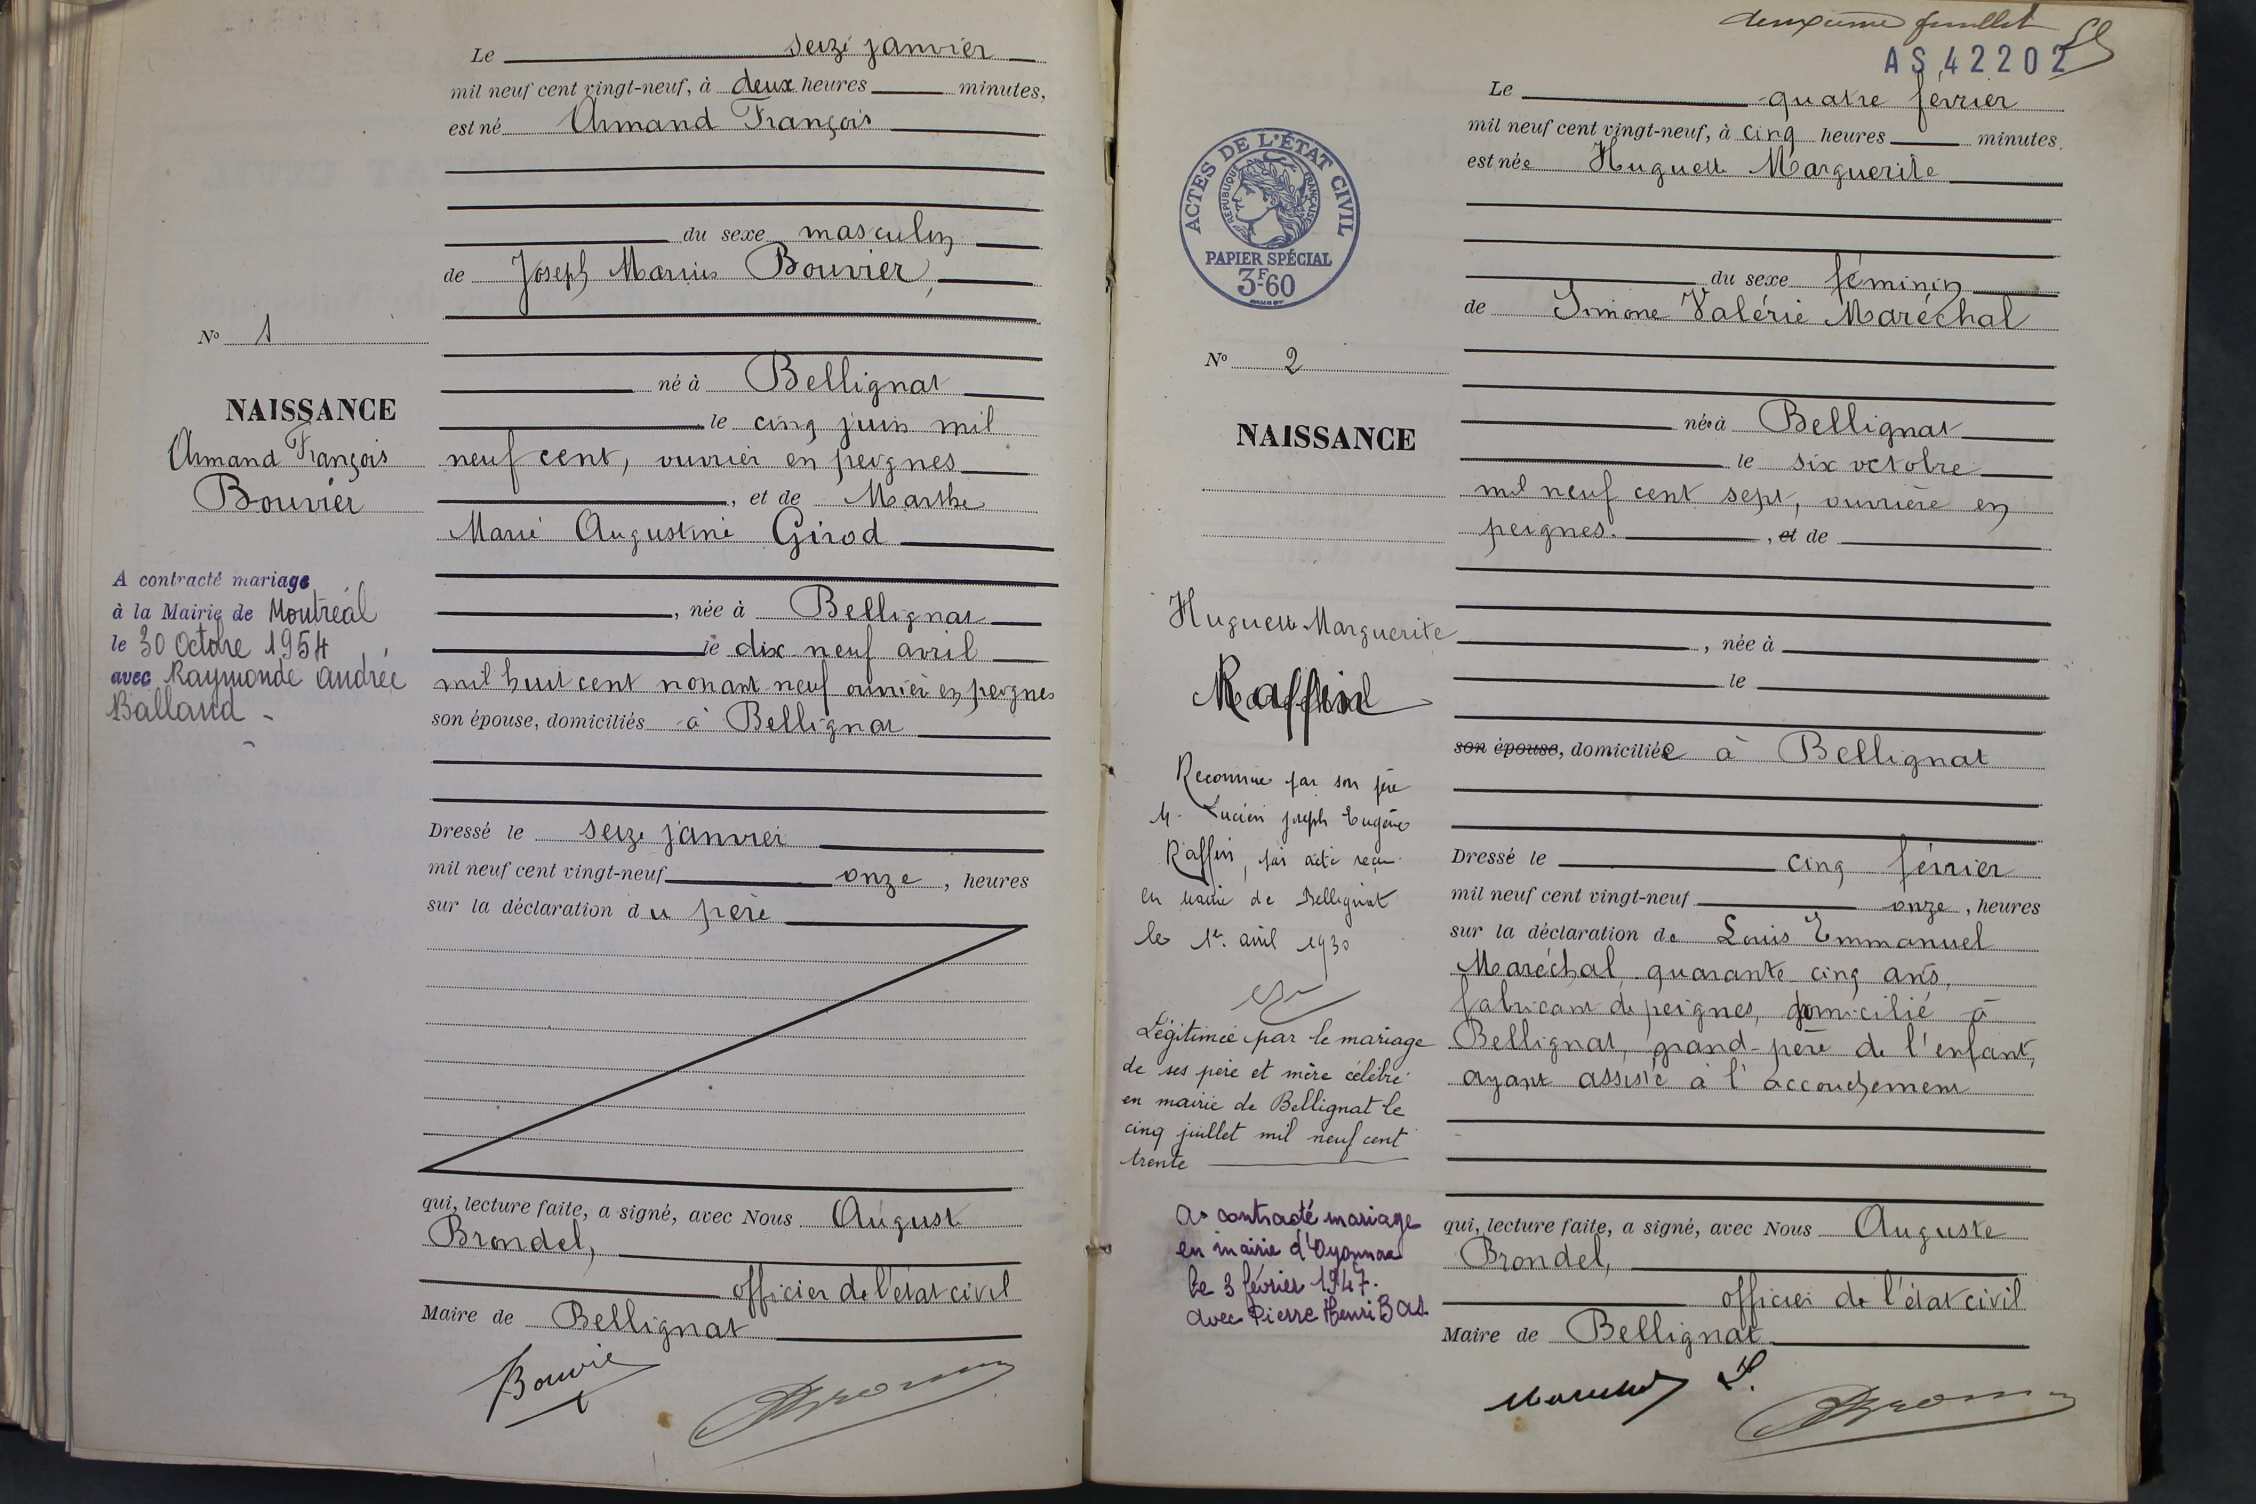 Le seize janvier
mil neuf cent vingt-neuf, à deux heures minutes,
est né Armand François
du sexe masculin
de Joseph Marius Bouvier,
né à Bellignat
le cinq juin mil
neuf cent, ouvrier en peignes
, et de Marthe
Marie Augustine Girod
, née à Bellignat
le dix neuf avril
mil huit cent nonant neuf ouvrier en peignes
son épouse, domiciliés à Bellignat
Dressé le seize janvier
mil neuf cent vingt-neuf onze, heures
sur la déclaration du père
qui, lecture faite, a signé, avec Nous Auguste
Brondel,
officier de l'état civil
Maire de Bellignat
Bouvier
N° 1
NAISSANCE
Armand François
Bouvier
A contracté mariage
à la Mairie de Montréal
le 30 Octobre 1954
avec Raymonde Andrée
Balland
deuxième feuillet
AS 42202
ACTES DE L'ÉTAT CIVIL
RÉPUBLIQUE FRANÇAISE
PAPIER SPÉCIAL
3F.60
Le quatre février
mil neuf cent vingt-neuf, à cinq heures minutes.
est née Huguette Marguerite
du sexe féminin
de Simone Valérie Maréchal
née à Bellignat
le six octobre
mil neuf cent sept, ouvrière en
peignes. , et de
, née à
le
son épouse, domiciliée à Bellignat
Dressé le cinq février
mil neuf cent vingt-neuf onze, heures
sur la déclaration de Louis Emmanuel
Maréchal quarante cinq ans,
fabricant de peignes, domicilié à
Bellignat, grand-père de l'enfant,
ayant assisté à l'accouchement
qui, lecture faite, a signé, avec Nous Auguste
Brondel,
officier de l'état civil
Maire de Bellignat
N° 2
NAISSANCE
Huguette Marguerite
Raffin
Reconnue par son père
M. Lucien Joseph Eugène
Raffin, par acte reçu
en mairie de Bellignat
le 1er avril 1930
Légitimée par le mariage
de ses père et mère célébré
en mairie de Bellignat le
cinq juillet mil neuf cent
trente
A contracté mariage
en mairie d'Oyonnax
le 3 février 1947.
avec Pierre Henri Bas